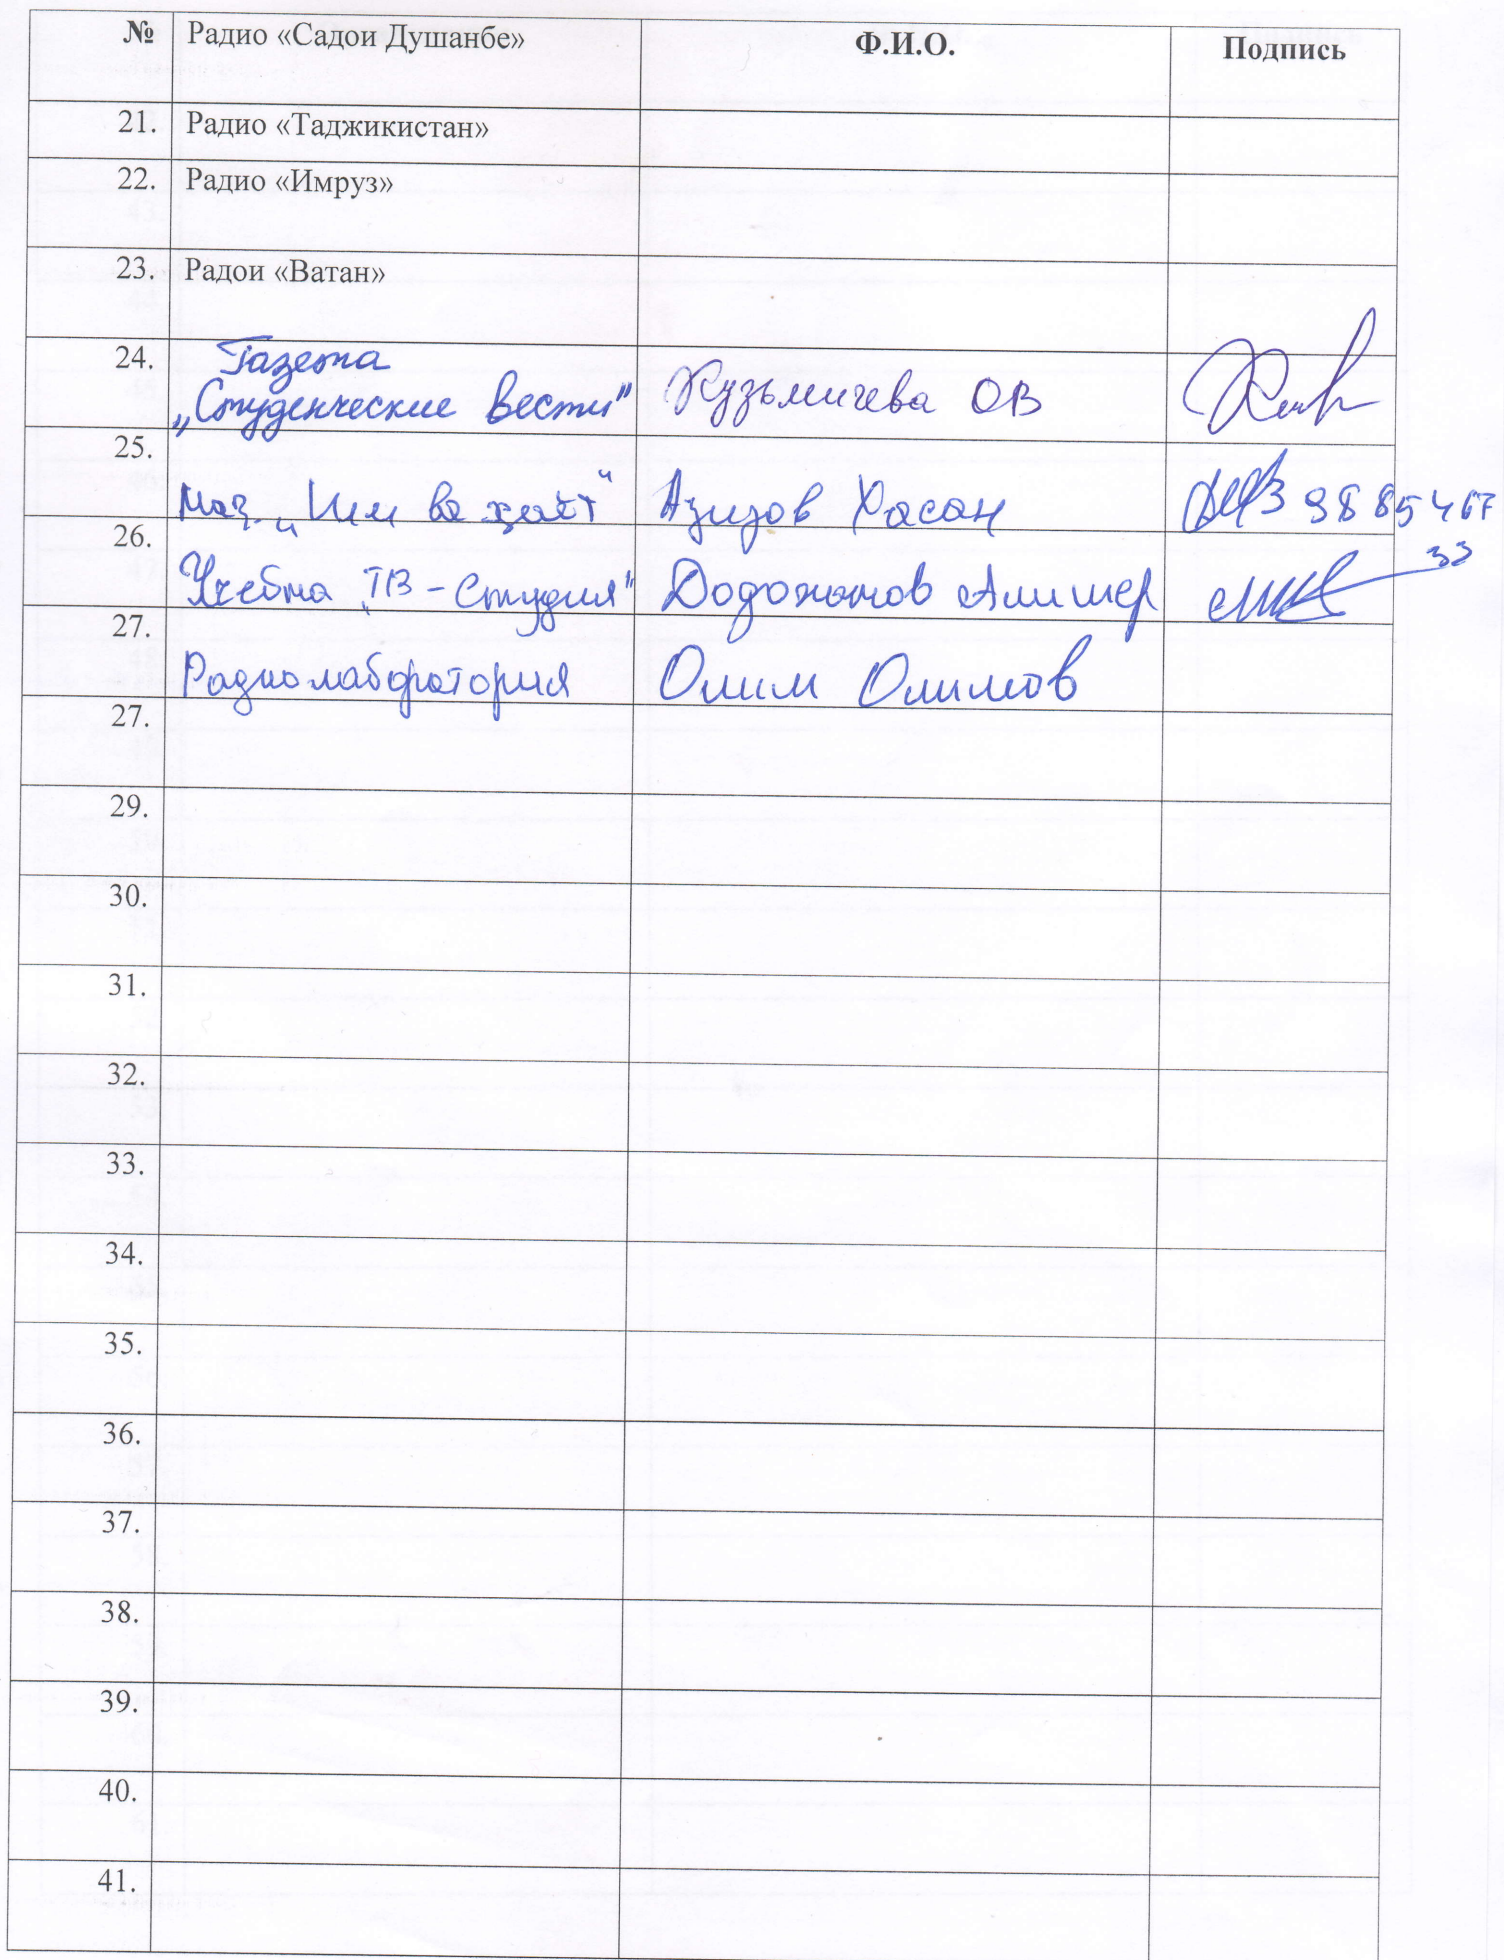 № Радио «Садои Душанбе» Ф.И.О. Подпись
21. Радио «Таджикистан»
22. Радио «Имруз»
23. Радои «Ватан»
24. Газета
„Студенческие вести" Кузьмичева ОВ
25.
„Илм ва ҳаёт" Азизов Хасан
26.
Учебна „ТВ - Студия" Додоҷонов Алишер
27.
Радиолаборатория Олим Олимов
27.
29.
30.
31.
32.
33.
34.
35.
36.
37.
38.
39.
40.
41.